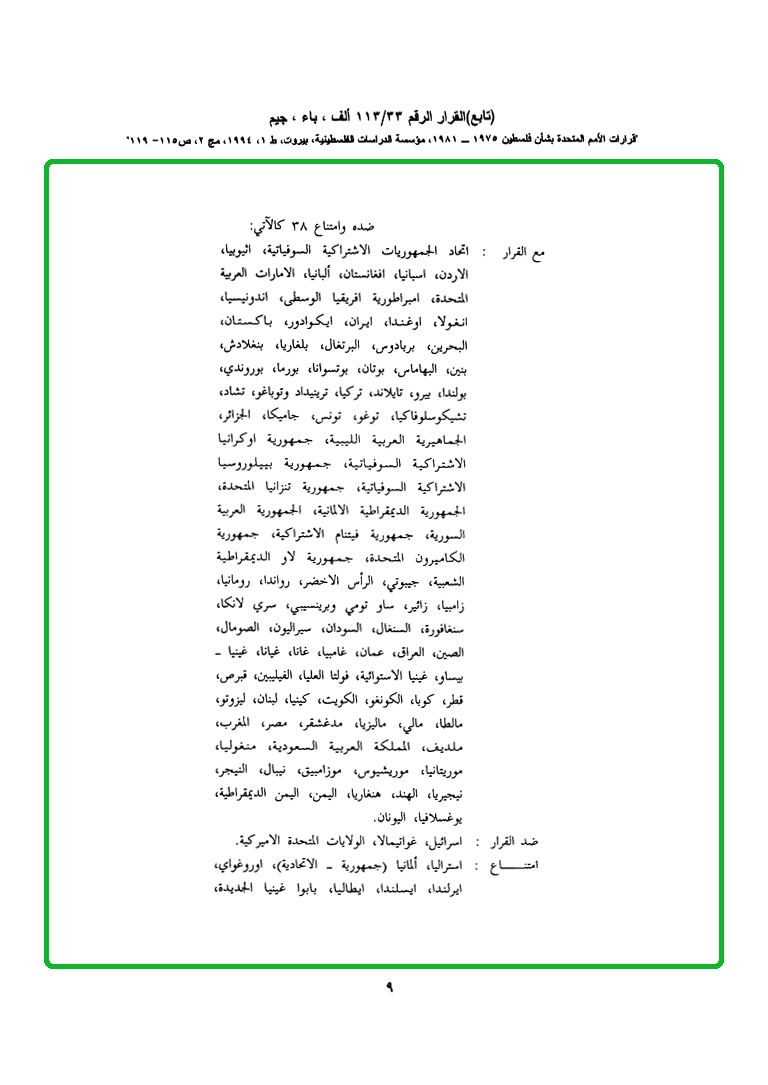 (تابع)القرار الرقم ١١٣/٣٣ ألف ، باء ، جيم
"قرارات الأمم المتحدة بشأن فلسطين ١٩٧٥ ــ ١٩٨١، مؤسسة الدراسات الفلسطينية، بيروت، ط ١، ١٩٩٤، مج ٢، ص١١٥- ١١٩"
ضده وامتناع ٣٨ كالآتي:
مع القرار : اتحاد الجمهوريات الاشتراكية السوفياتية، اثيوبيا،
الاردن، اسبانيا، افغانستان، ألبانيا، الامارات العربية
المتحدة، امبراطورية افريقيا الوسطى، اندونيسيا،
انغولا، اوغندا، ايران، ايكوادور، باكستان،
البحرين، بربادوس، البرتغال، بلغاريا، بنغلادش،
بنين، البهاماس، بوتان، بوتسوانا، بورما، بوروندي،
بولندا، بيرو، تايلاند، تركيا، ترينيداد وتوباغو، تشاد،
تشيكوسلوفاكيا، توغو، تونس، جاميكا، الجزائر،
الجماهيرية العربية الليبية، جمهورية اوكرانيا
الاشتراكية السوفياتية، جمهورية بييلوروسيا
الاشتراكية السوفياتية، جمهورية تنزانيا المتحدة،
الجمهورية الديمقراطية الالمانية، الجمهورية العربية
السورية، جمهورية فيتنام الاشتراكية، جمهورية
الكاميرون المتحدة، جمهورية لاو الديمقراطية
الشعبية، جيبوتي، الرأس الاخضر، رواندا، رومانيا،
زامبيا، زائير، ساو تومي وبرينسيبي، سري لانكا،
سنغافورة، السنغال، السودان، سيراليون، الصومال،
الصين، العراق، عمان، غامبيا، غانا، غيانا، غينيا ــ
بيساو، غينيا الاستوائية، فولتا العليا، الفيليبين، قبرص،
قطر، كوبا، الكونغو، الكويت، كينيا، لبنان، ليزوتو،
مالطا، مالي، ماليزيا، مدغشقر، مصر، المغرب،
ملديف، المملكة العربية السعودية، منغوليا،
موريتانيا، موريشيوس، موزامبيق، نيبال، النيجر،
نيجيريا، الهند، هنغاريا، اليمن، اليمن الديمقراطية،
يوغسلافيا، اليونان.
ضد القرار : اسرائيل، غواتيمالا، الولايات المتحدة الاميركية.
امتنـــــاع : استراليا، ألمانيا (جمهورية ــ الاتحادية)، اوروغواي،
ايرلندا، ايسلندا، ايطاليا، بابوا غينيا الجديدة،
٩